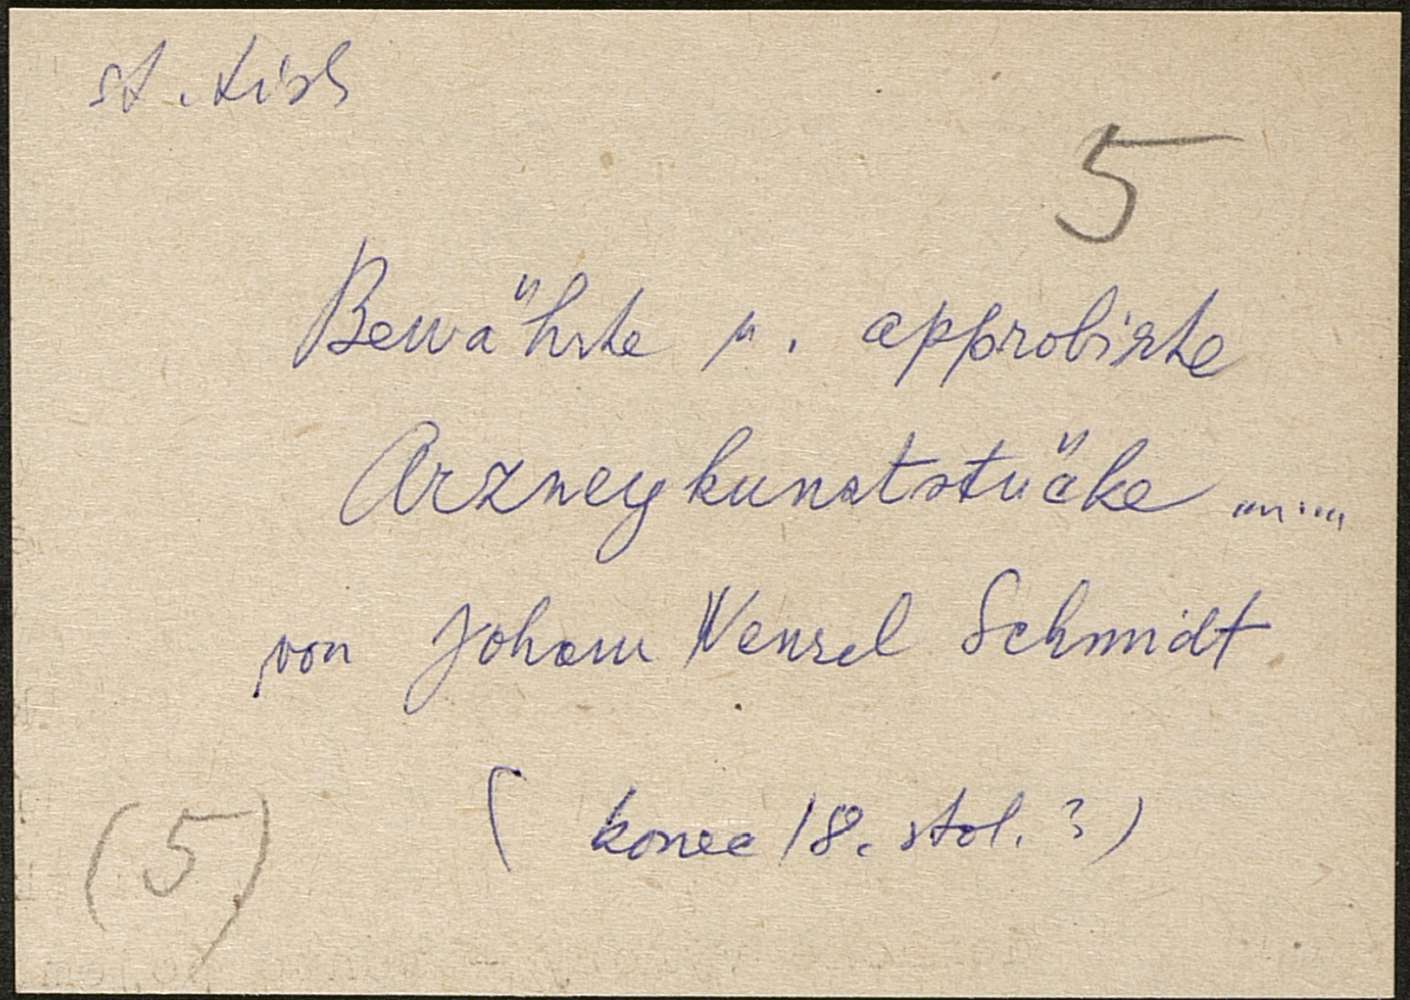 st. tisk
5
Bewährte u. approbirte
Arzneykunststücke .......
von Johann Wenzel Schmidt
( konec 18. stol. ? )
(5)